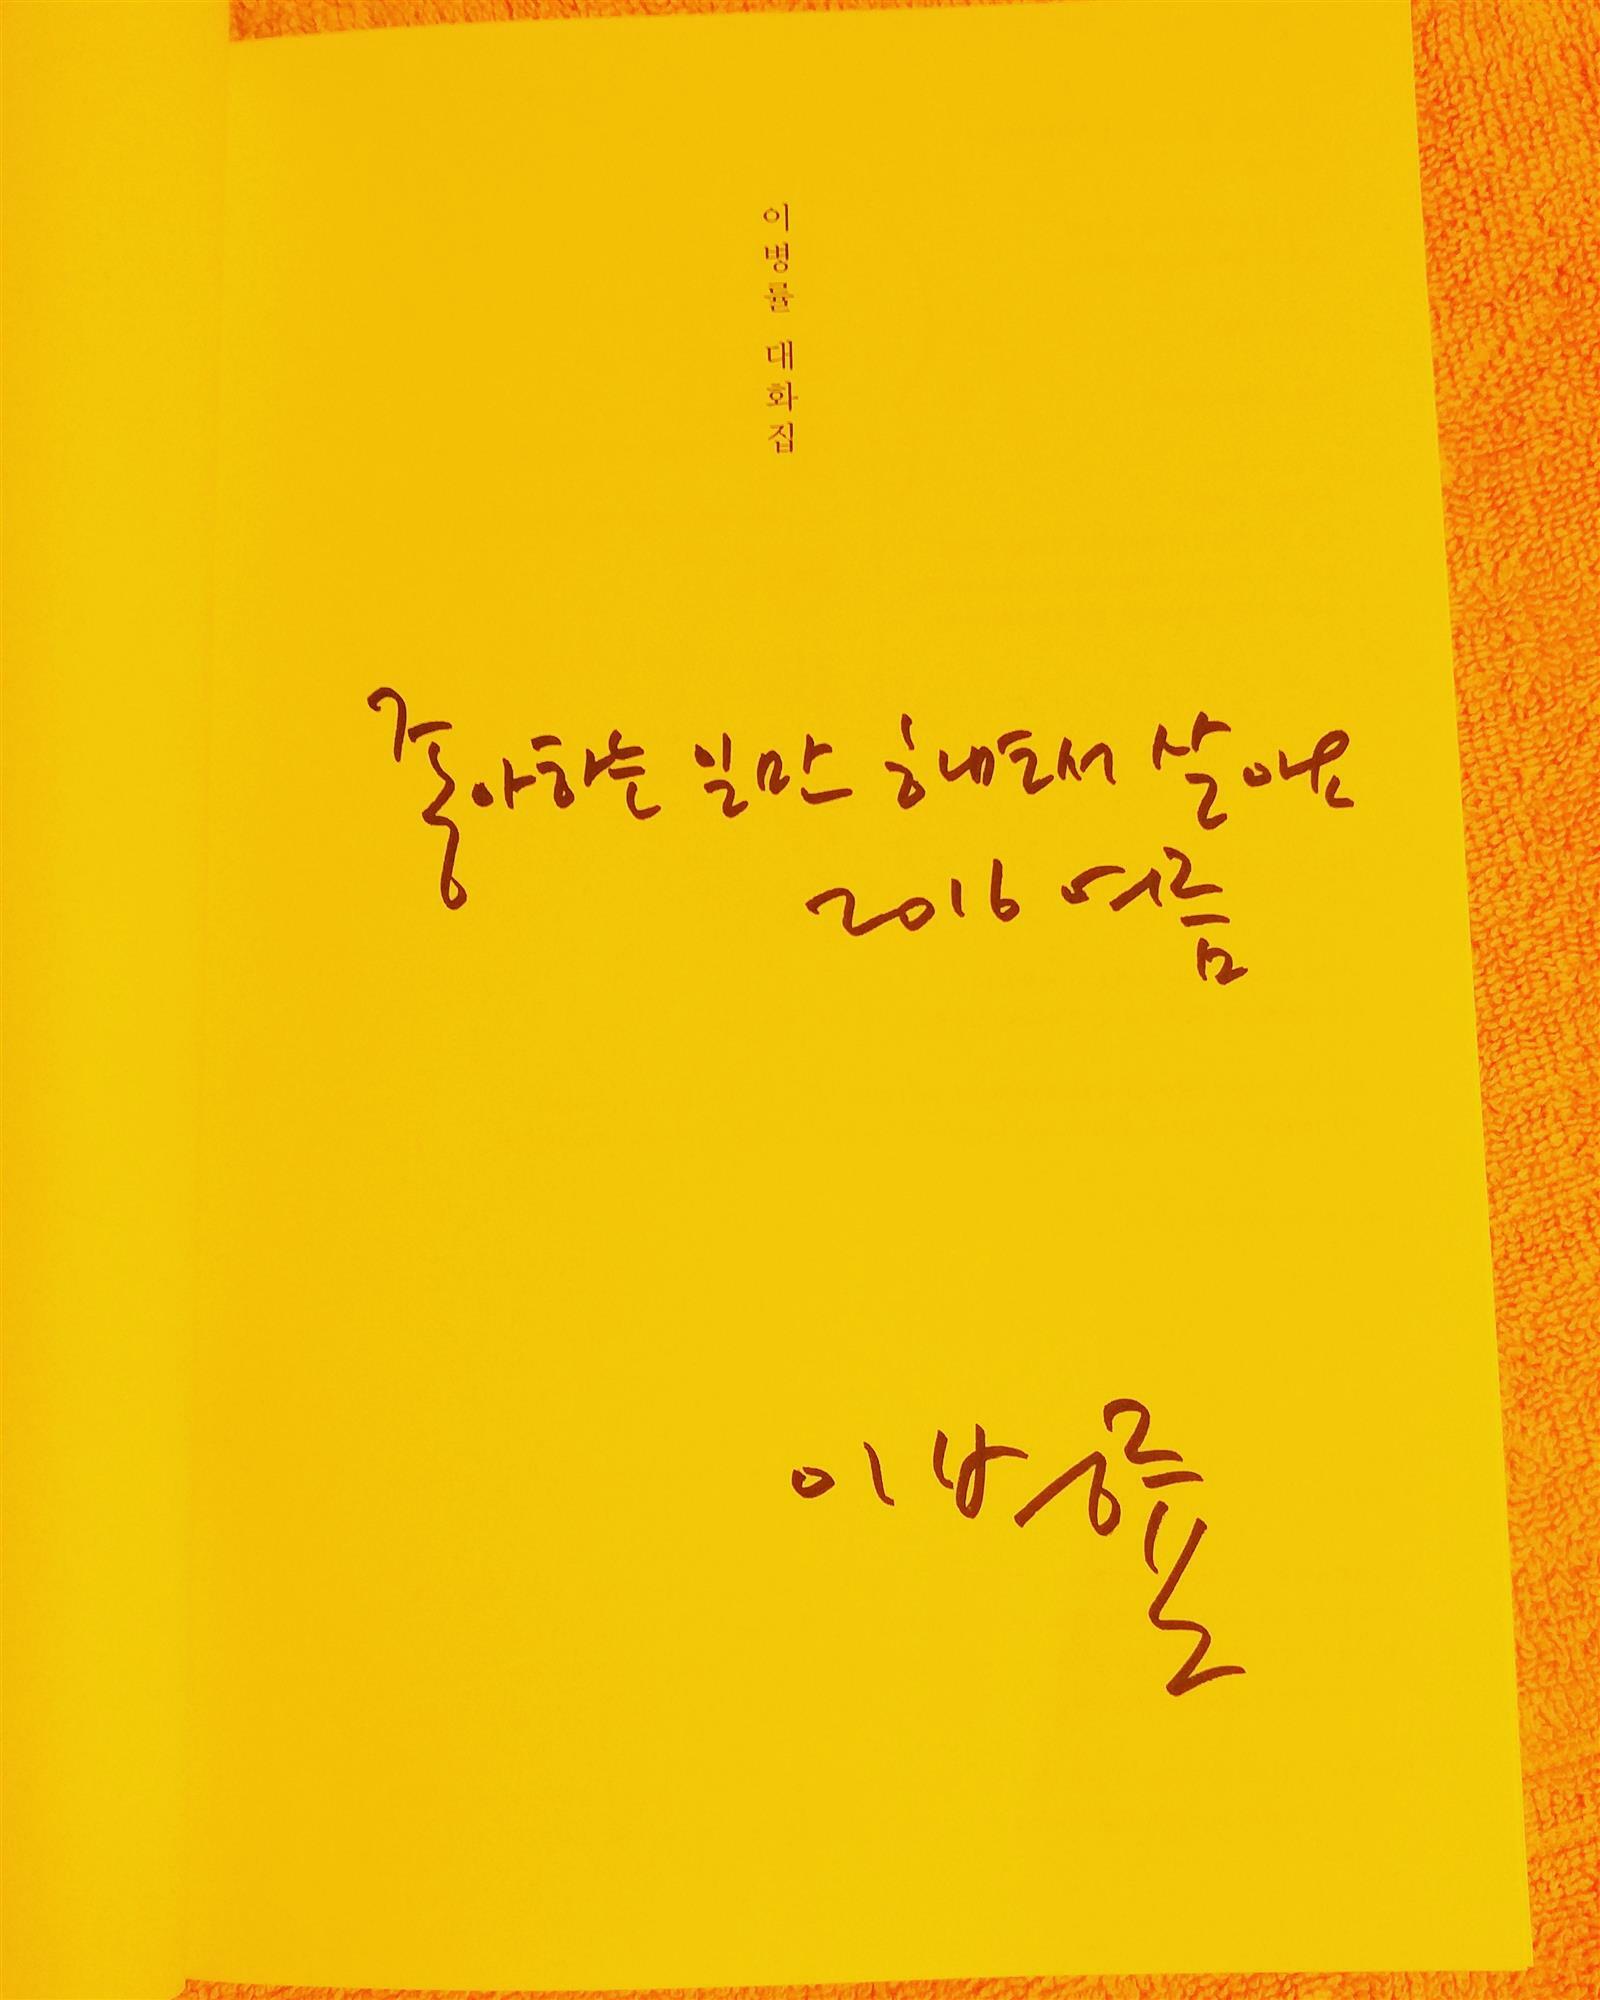 이병률 대화집
좋아하는 일만 하면서 살아요
2016 여름
이병률